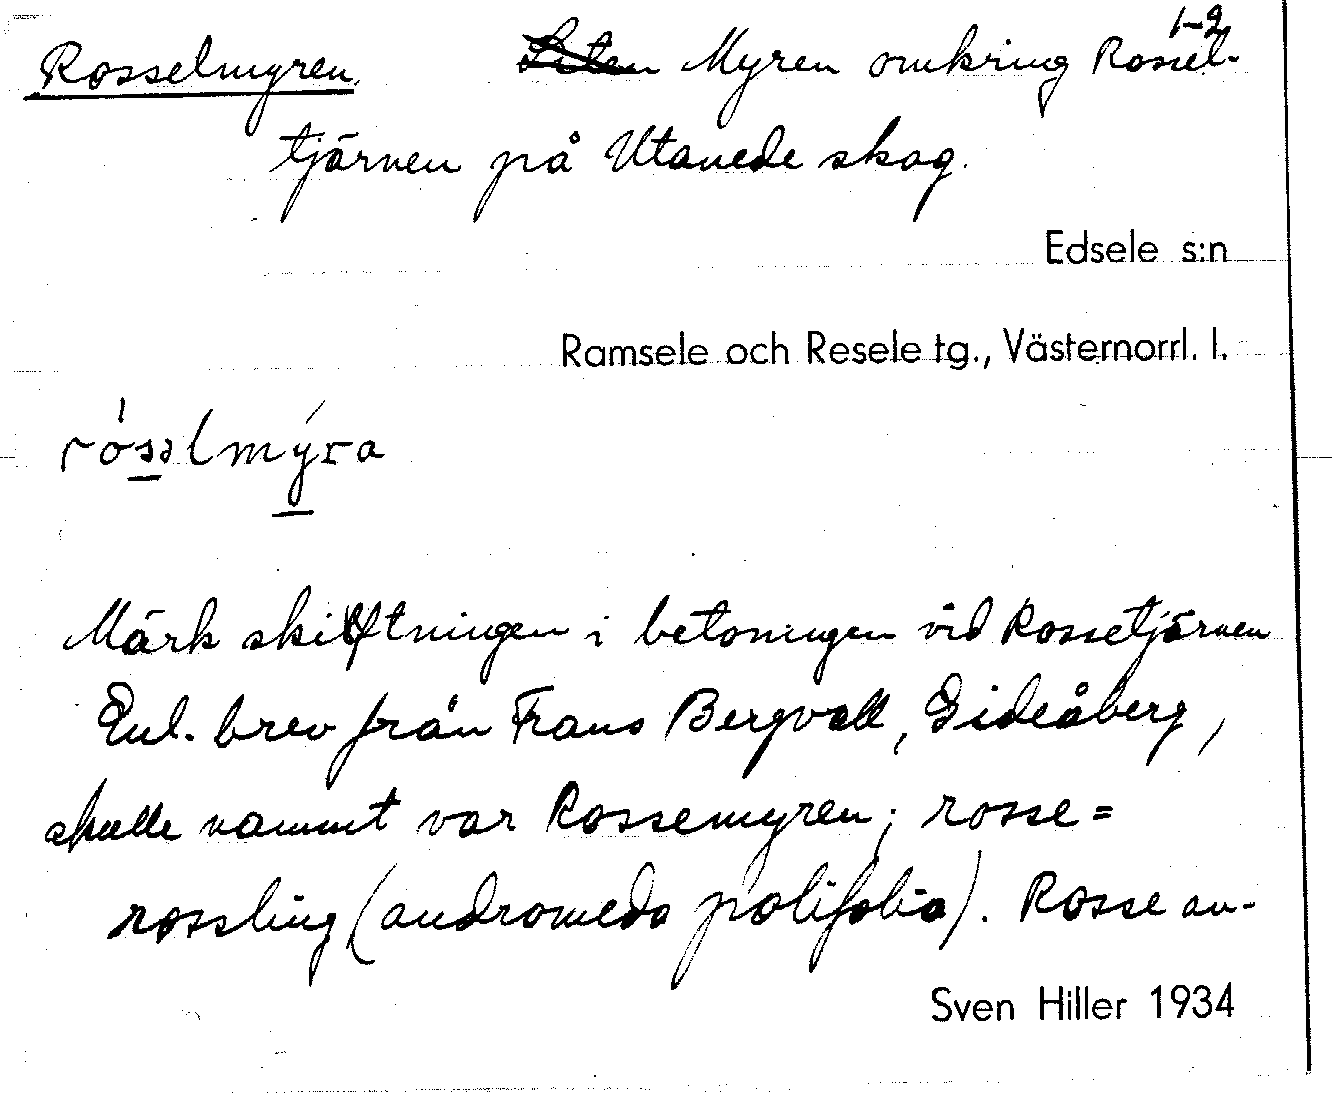 1-2
Rosselmyren. Liten Myren omkring Rossel-
tjärnen på Utanede skog.
Edsele s:n
Ramsele och Resele tg., Västernorrl. l.
Märk skiftningen i betoningen vid Rossetjärnen
Enl. brev från Frans Bergvall, Gideåberg,
skulle namnet var Rossemyren; rosse =
rossling (andromeda polifolia). Rosse an-
Sven Hiller 1934